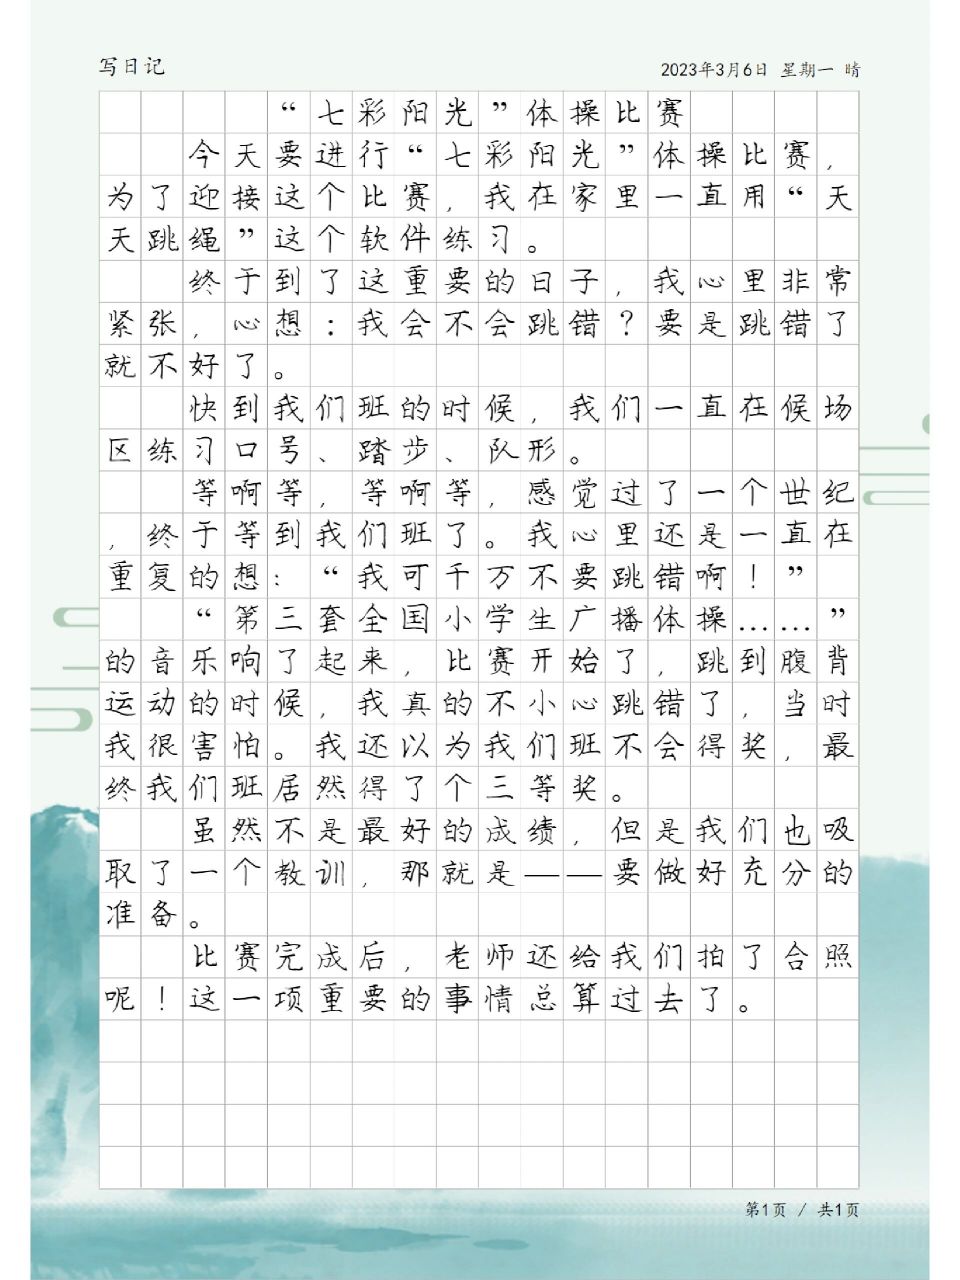 写日记
2023年3月6日 星期一 晴
“七彩阳光”体操比赛
今天要进行“七彩阳光”体操比赛，
为了迎接这个比赛，我在家里一直用“天
天跳绳”这个软件练习。
终于到了这重要的日子，我心里非常
紧张，心想：我会不会跳错？要是跳错了
就不好了。
快到我们班的时候，我们一直在候场
区练习口号、踏步、队形。
等啊等，等啊等，感觉过了一个世纪
，终于等到我们班了。我心里还是一直在
重复的想：“我可千万不要跳错啊！”
“第三套全国小学生广播体操……”
的音乐响了起来，比赛开始了，跳到腹背
运动的时候，我真的不小心跳错了，当时
我很害怕。我还以为我们班不会得奖，最
终我们班居然得了个三等奖。
虽然不是最好的成绩，但是我们也吸
取了一个教训，那就是——要做好充分的
准备。
比赛完成后，老师还给我们拍了合照
呢！这一项重要的事情总算过去了。
第1页 / 共1页